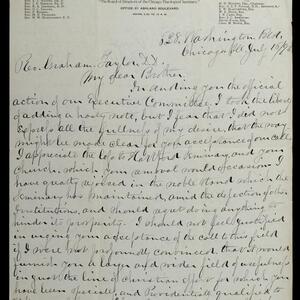 "The Board of Directors of the Chicago Theological Seminary."
OFFICE 81 ASHLAND BOULEVARD.
Washington Blvd.
Chicago, Ills
Rev. Graham Taylor D.D.
My dear Brother,
In sending you the official
action of our Executive Committee, I took the liberty
of adding a hasty note, but I fear that I did not
express all the fullness of my desire, that the way
might be made clear for your acceptance of our call
I appreciate the loss to Hartford Seminary and your
Church, which your removal would occasion. I
have greatly rejoiced in the noble stand which the
Seminary has maintained, amid the defection of other
Institutions, and should regret doing anything to
hinder its prosperity. I should not feel justified
in urging your acceptance of the call to this field
if I were not profoundly convinced that it would
furnish you a larger and wider field of usefulness
in just the line of Christian effort for which you
have been specially and Providentially qualified to